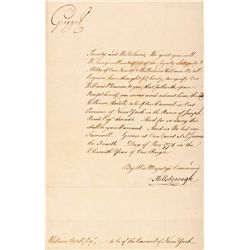 George R
Trusty and Welbeloved, We greet you well.
We being well satisfied of the Loyalty Integrity &
Ability of Our Trusty & Welbeloved William Axtell
Esquire, have thought fit hereby to signify Our
Will and Pleasure to you, that forthwith upon
Receipt hereof, you swear and admit him the said
William Axtell to be of Our Council in Our
Province of New York in the Room of Joseph
Reade Esqr. deceased. And for so doing this
shall be your Warrant. And so We bid you
Farewell. Given at Our Court at St. James's
the Fourth Day of 1771 in the
Eleventh Year of Our Reign.
By His Majesty's Command
Hillsborough
William Axtell, Esqr. to be of the Council of New York.